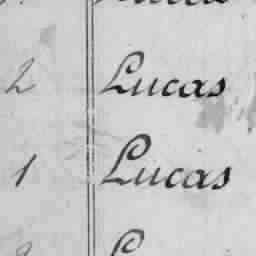 2 Lucas
1 Lucas